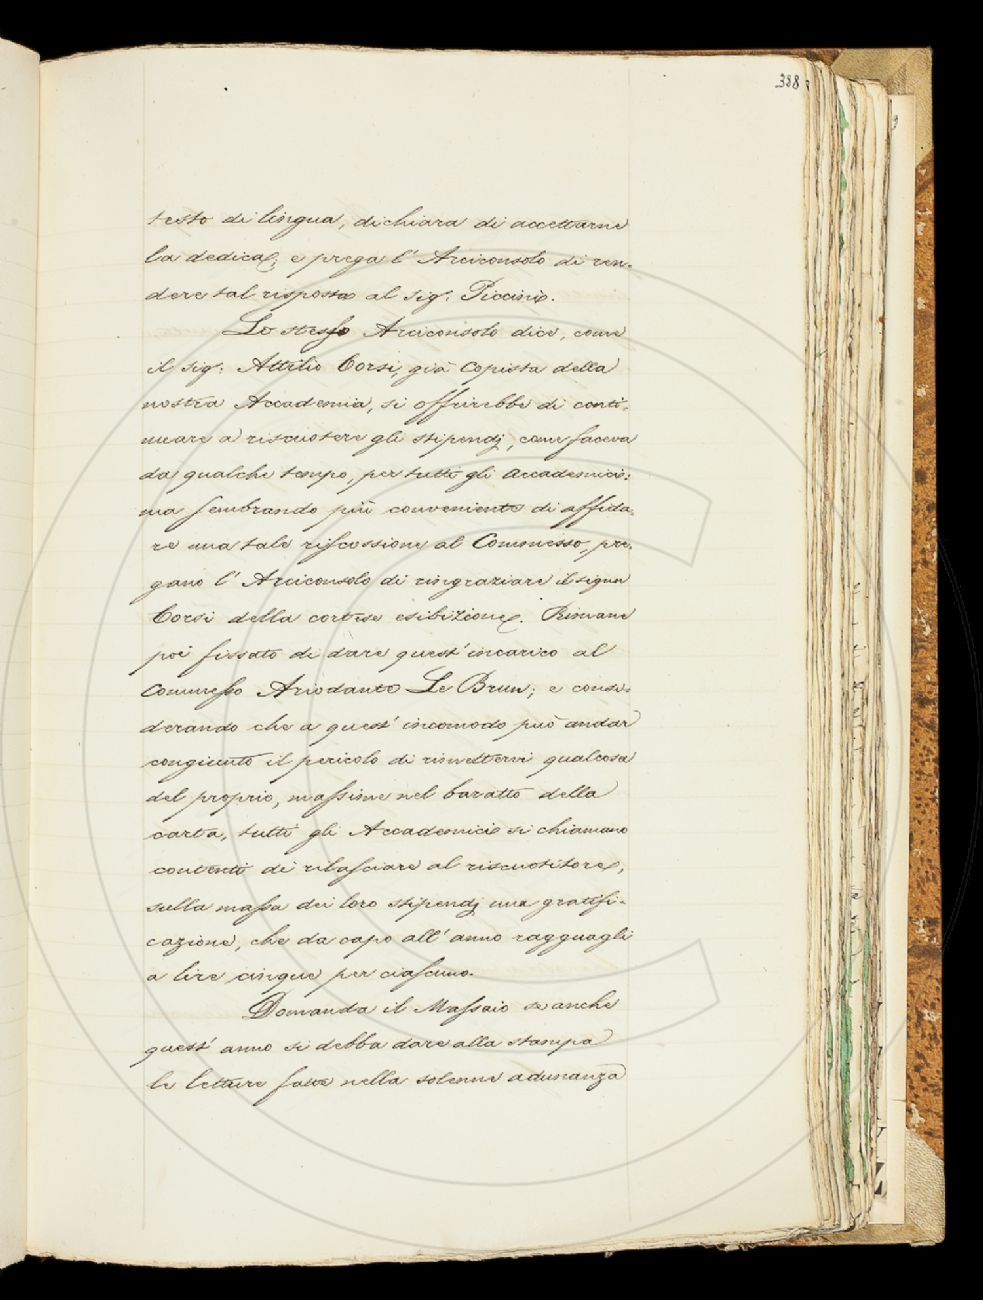 388
testo di lingua, dichiara di accettarne
la dedica; e prega l'Arciconsolo di ren-
dere tal risposta al sig. Piccini.
Lo stesso Arciconsolo dice, come
il sig. Attilio Corsi, già Copista della
nostra Accademia, si offrirebbe di conti-
nuare a riscuotere gli stipendj, come faceva
da qualche tempo, per tutti gli Accademici:
ma sembrando più conveniente di affida-
re una tale riscossione al Commesso, pre-
gano l'Arciconsolo di ringraziare il signor
Corsi della cortese esibizione. Rimane
poi fissato di dare quest'incarico al
Commesso Ariodante Le Brun; e consi-
derando che a quest'incomodo può andar
congiunto il pericolo di rimettervi qualcosa
del proprio, massime nel baratto della
carta, tutti gli Accademici si chiamano
contenti di rilasciare al riscuotitore,
sulla massa dei loro stipendj una gratifi-
cazione, che da capo all'anno ragguagli
a lire cinque per ciascuno.
Domanda il Massaio se anche
quest'anno si debba dare alla stampa
le letture fatte nella solenne adunanza